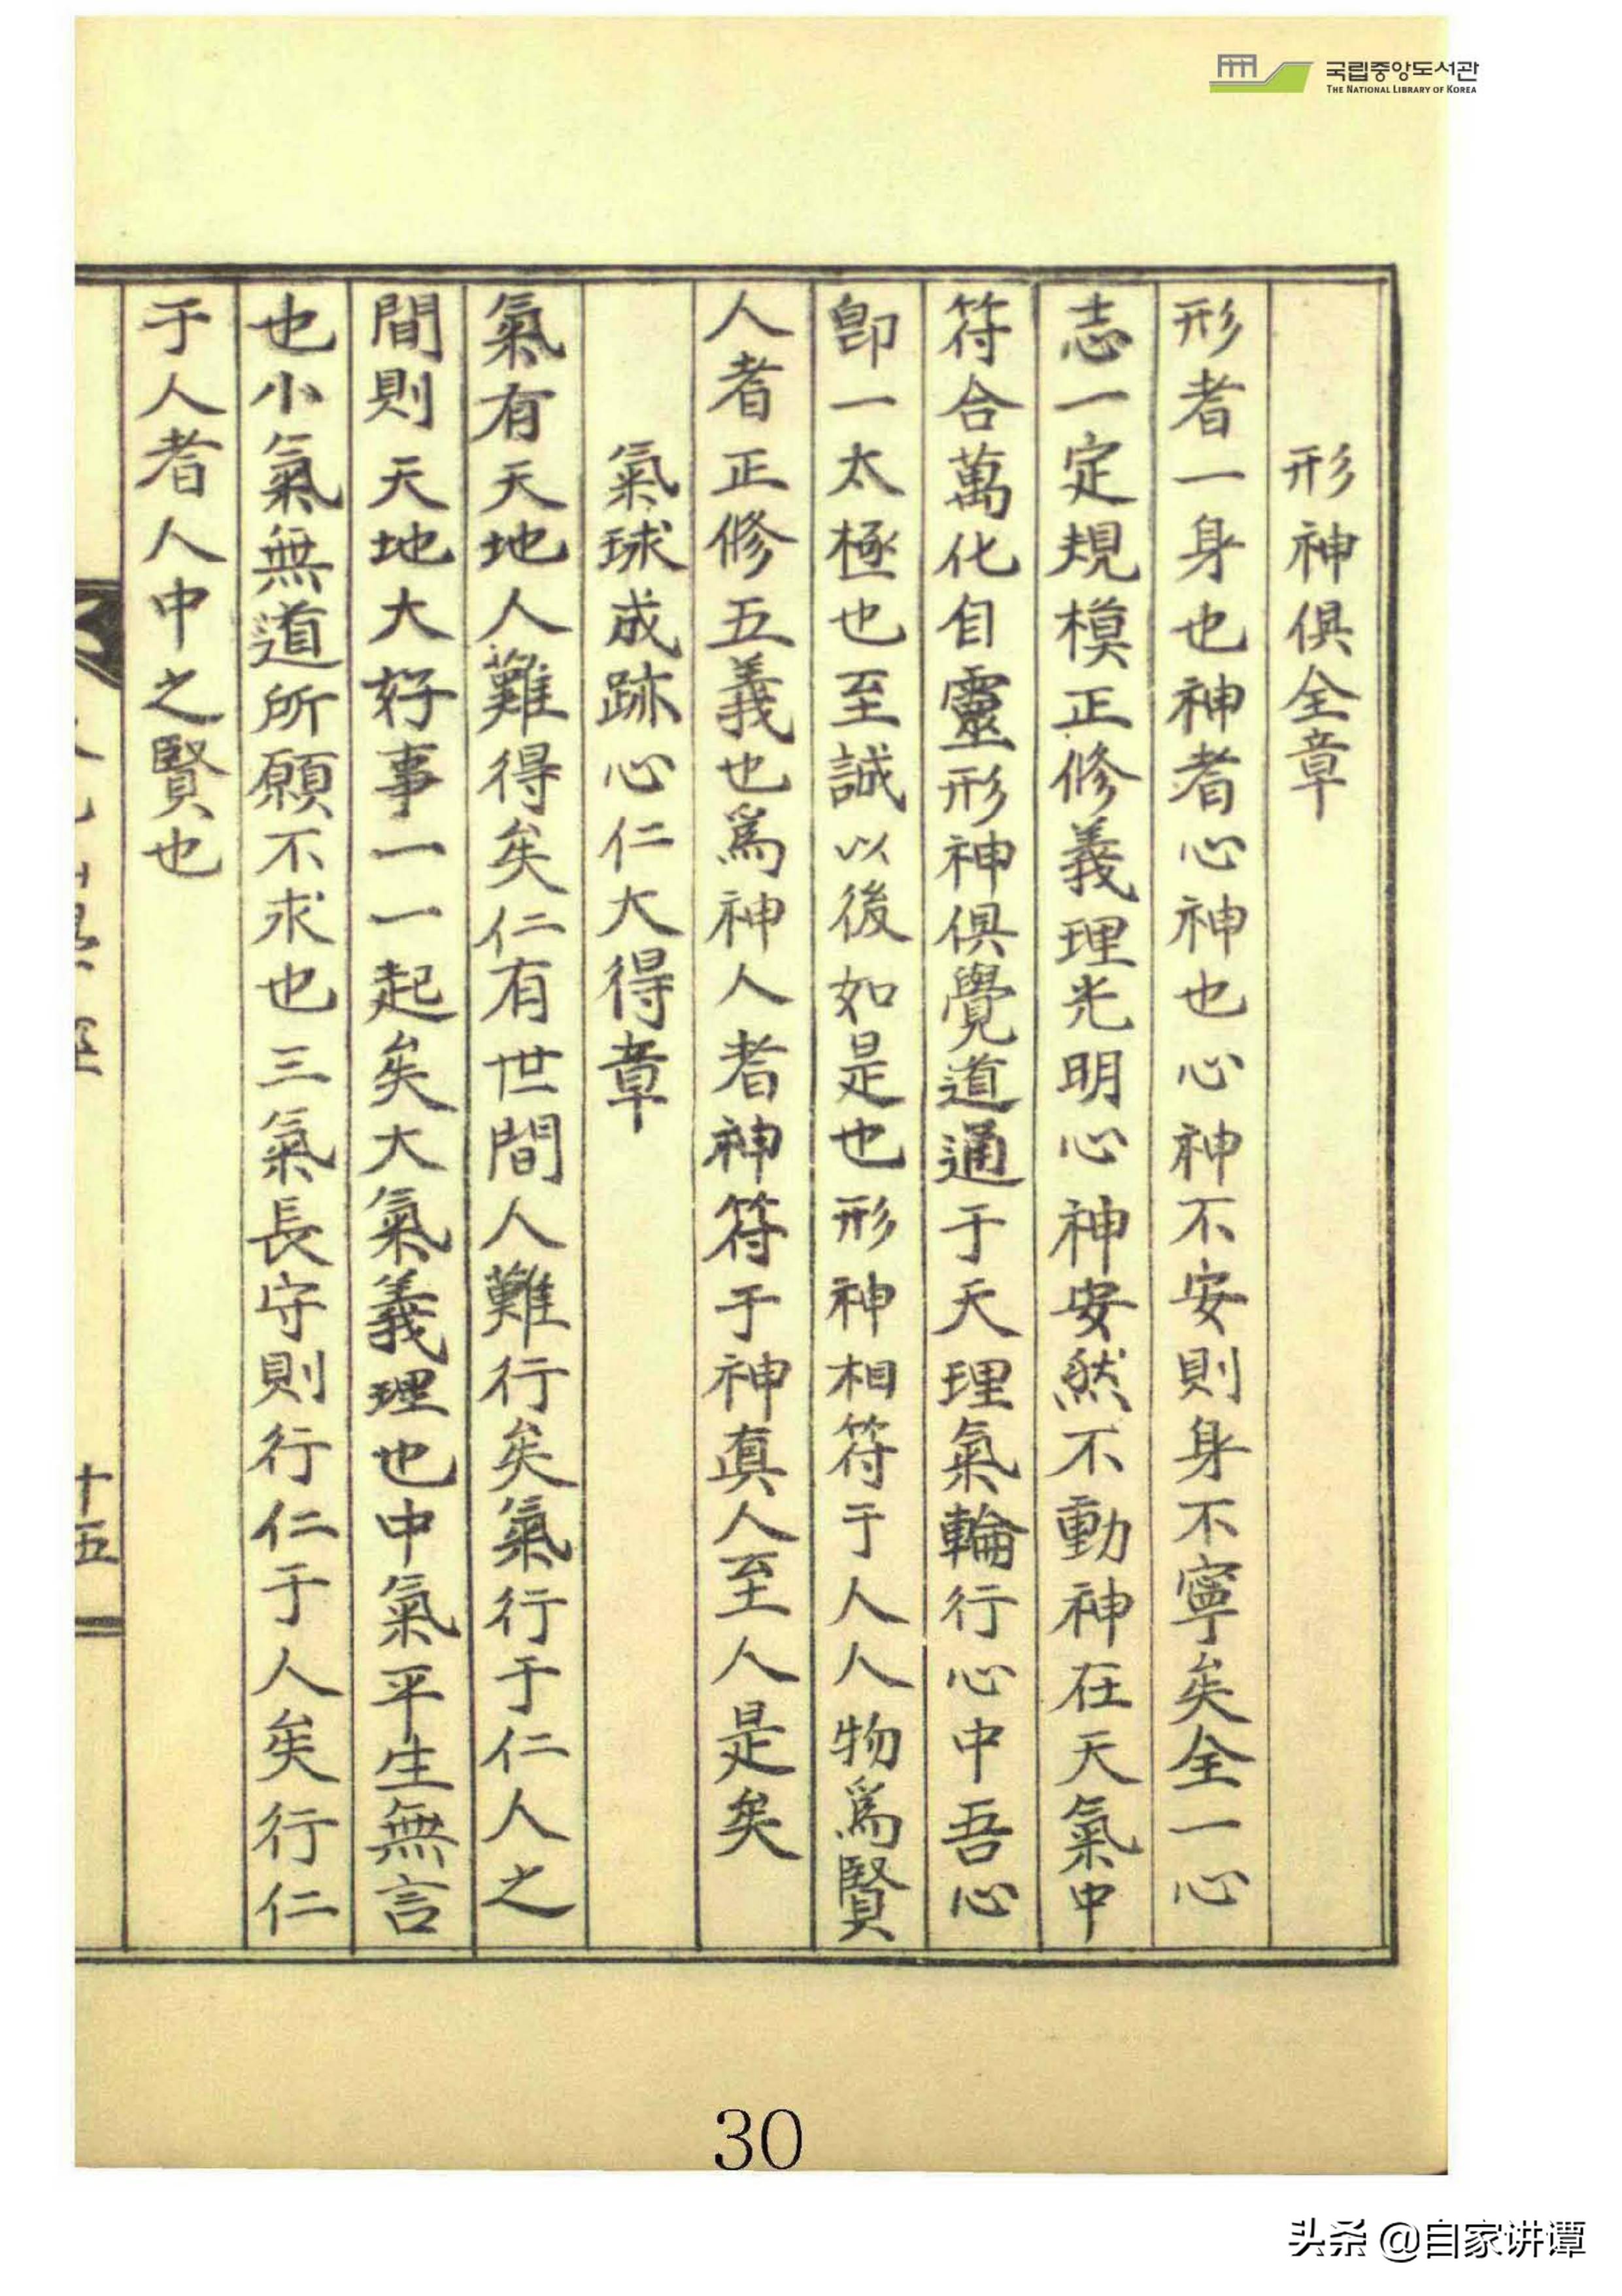 국립중앙도서관
THE NATIONAL LIBRARY OF KOREA
形神俱全章
形者一身也神者心神也心神不安則身不寧矣全一心
志一定規模正修義理光明心神安然不動神在天氣中
符合萬化自靈形神俱覺道通于天理氣輪行心中吾心
卽一太極也至誠以後如是也形神相符于人人物爲賢
人者正修五義也爲神人者神符于神眞人至人是矣
氣球成跡心仁大得章
氣有天地人難得矣仁有世間人難行矣氣行于仁人之
間則天地大好事一一起矣大氣義理也中氣平生無言
也小氣無道所願不求也三氣長守則行仁于人矣行仁
于人者人中之賢也
十五
30
头条 @自家讲谭